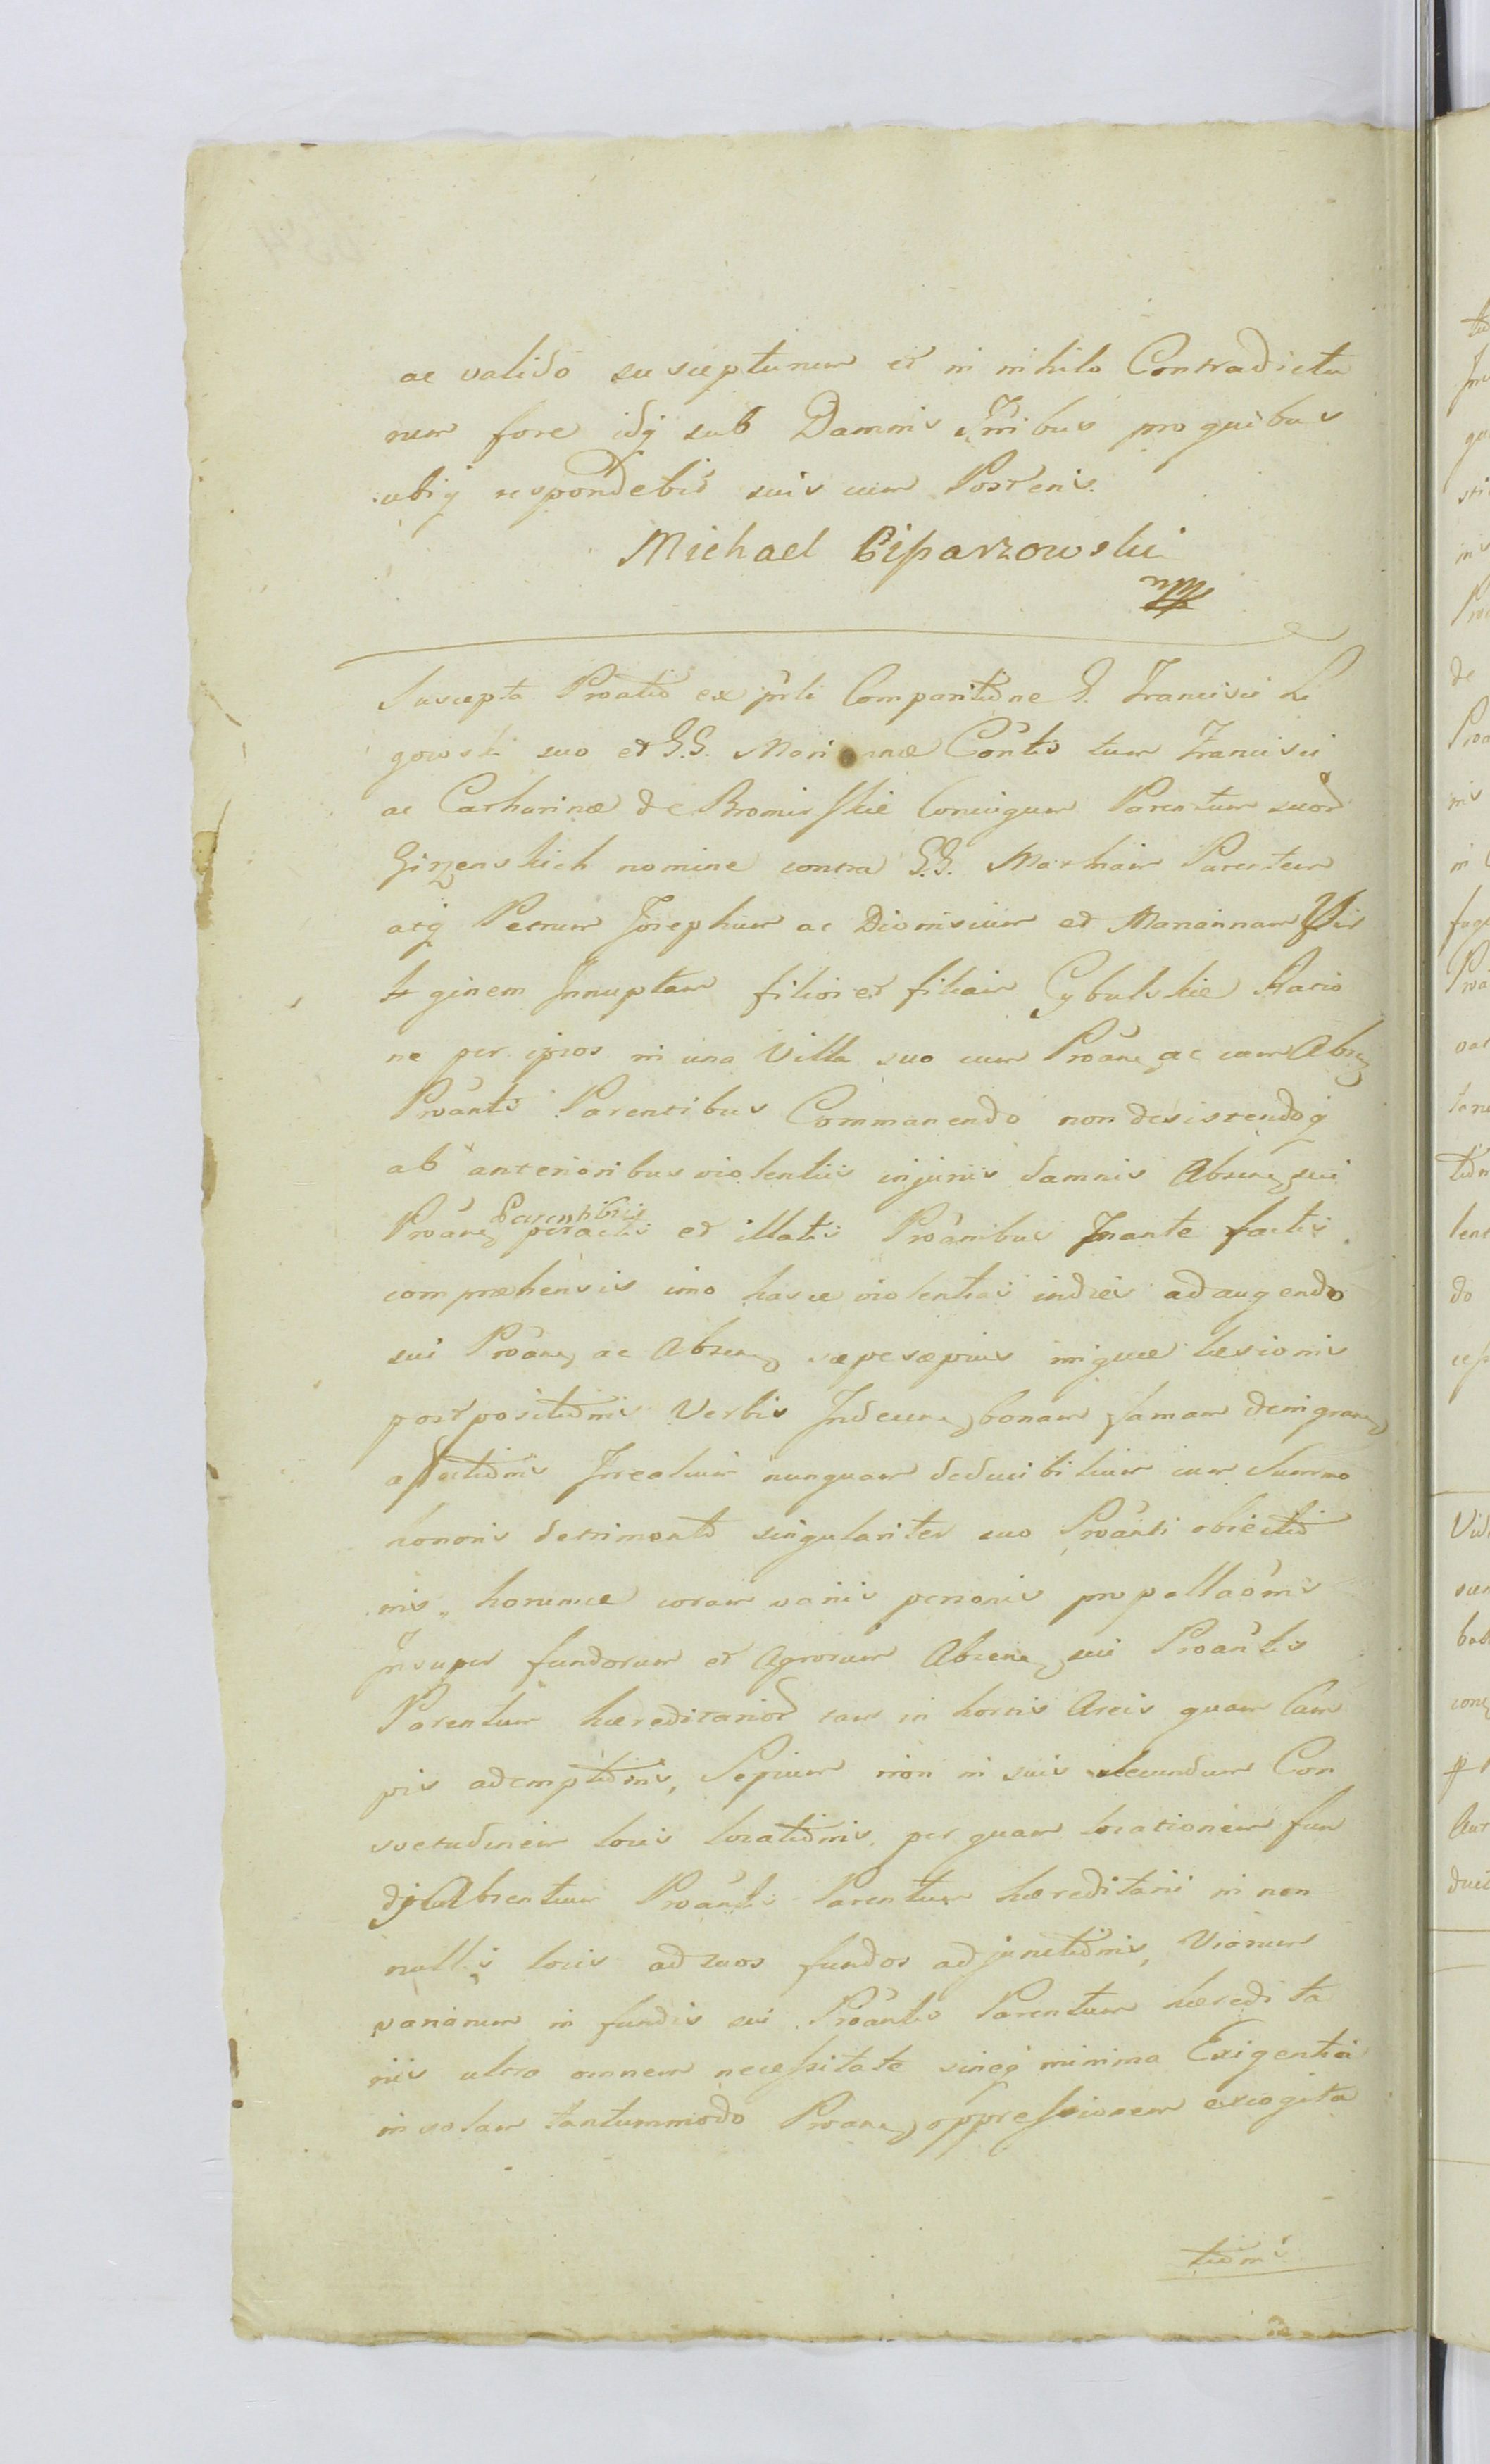 ac valido suscepturum et in nihilo Contradictu
rum fore idq sub Damnis Trribus pro quibus
ubiq respondebit suis cum Posteris.
Michael Ciparzowski
mpp
Suscepta Proatio ex prli Comparitione G. Francisci Li
gowski suo et G.G. Mariannæ Contis tum Francisci
ac Catharinæ de Bromirskie Coniugum Parentum suor
Girzenskich nomine contra G.G. Mathiam Parentem
atq Petrum Josephum ac Dionisium et Mariannam Vir
ginem Innuptam filios et filiam Cybulskie Ratio
ne per ipsos in una Villa suo cum Proane ac cum Absen
Proantis Parentibus Commanendo non desistendoq
ab anterioribus violentiis injuriis damnis Absen sui
Proane Parentibus peractis et illatis Proanibus Inante factis
comprehensis imo hasce violentias indies adaugendo
sui Proane ac Absen sæpesæpius iniquæ læsionis
postpositionis Verbis Indecen bonam famam denigran
affectionis Irrealium nunquam deducibilium cum Summo
honoris detrimento singulariter suo Proanti obiectio
nis, horumce coram variis personis propallaonis
Insuper fundorum et Agrorum Absen sui Proantis
Parentum hæreditarior tam in hortis Areis quam Cam
pis ademptionis, Sepium non in suis secundum Con
svetudinem locis locationis, per quam locationem fun
di Absentium Proantis Parentum hæreditarii in non
nullis locis ad suos fundos adjunctionis, Viarum
variarum in fundis sui Proantis Parentum hæredita
riis ultra omnem necessitate sineq minima Exigentia
in solam tantummodo Proane oppressionem excogita
tionis